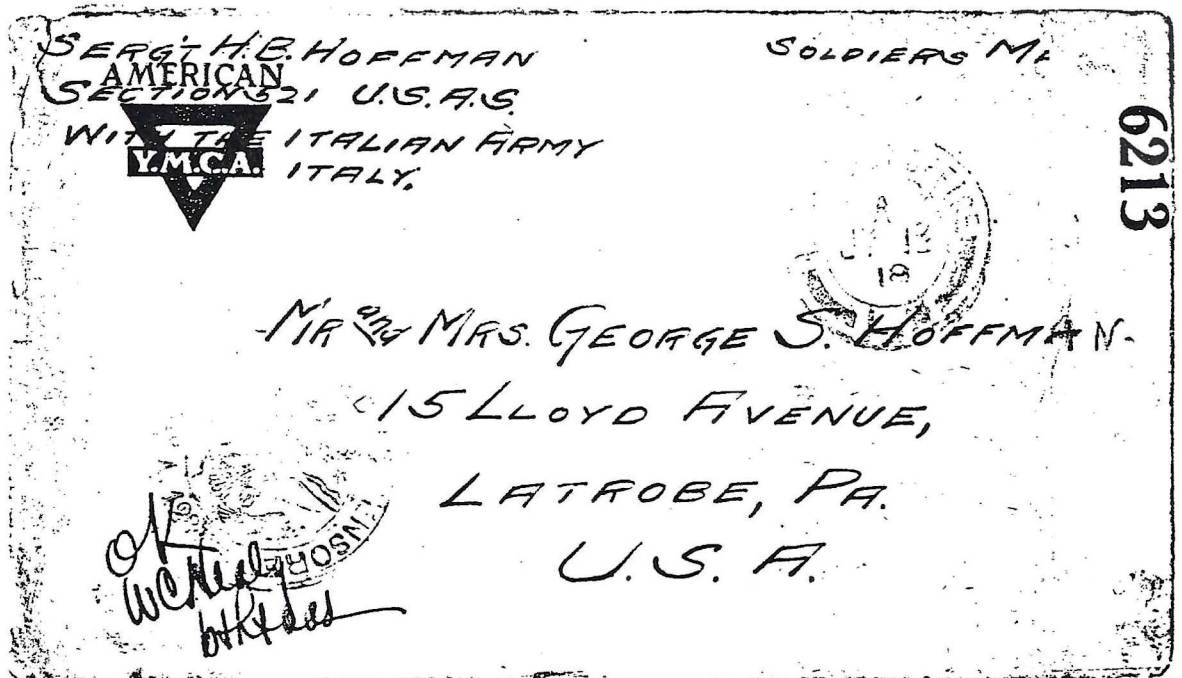 SERG'T H.B. HOFFMAN
AMERICAN
SECTION 521 U.S.A.S.
WITH THE ITALIAN ARMY
Y.M.C.A.
ITALY.
SOLDIERS
6213
A
18
MR and MRS. GEORGE S. HOFFMAN
15 LLOYD AVENUE,
LATROBE, PA.
U.S.A.
OK